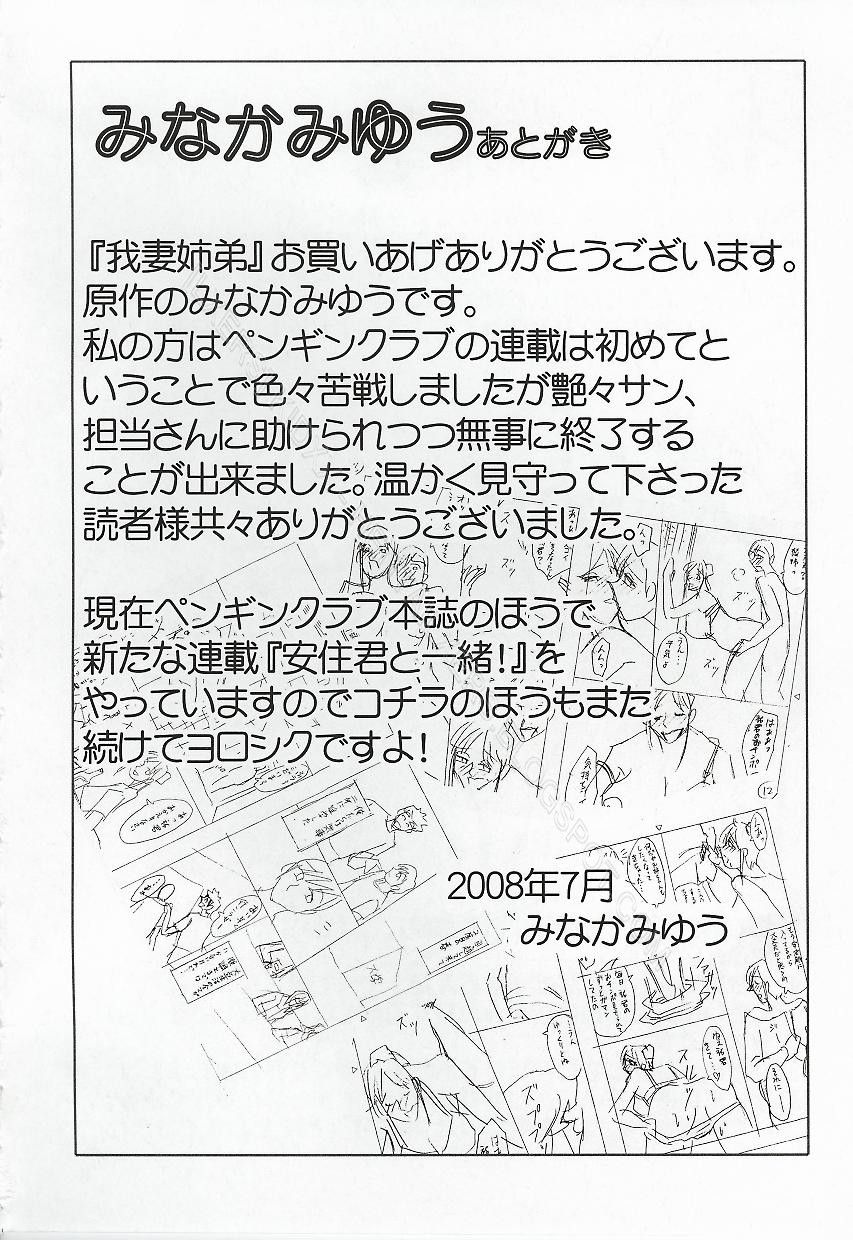 みなかみゆうあとがき
『我妻姉弟』お買いあげありがとうございます。
原作のみなかみゆうです。
私の方はペンギンクラブの連載は初めてと
いうことで色々苦戦しましたが艶々サン、
担当さんに助けられつつ無事に終了する
ことが出来ました。温かく見守って下さった
読者様共々ありがとうございました。
現在ペンギンクラブ本誌のほうで
新たな連載『安住君と一緒!』を
やっていますのでコチラのほうもまた
続けてヨロシクですよ!
2008年7月
みなかみゆう
ズッ
12
ズッ
ズッ